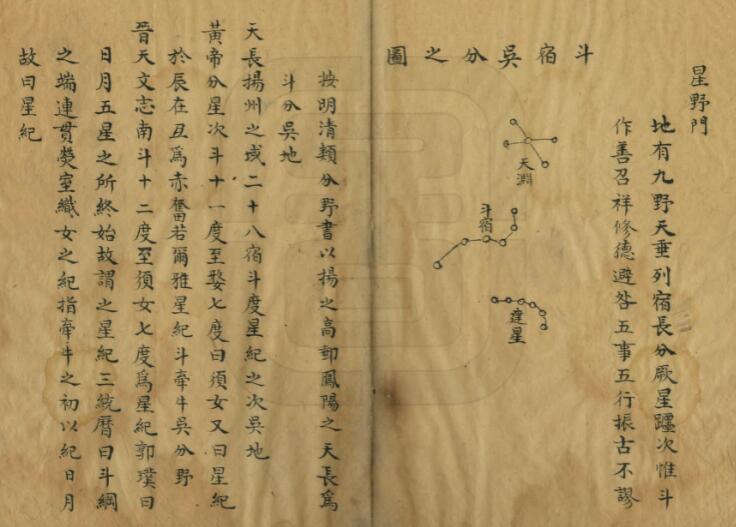 星野門
地有九野天垂列宿長分厥星躔次惟斗
作善召祥修德避咎五事五行振古不謬
斗宿吳分之圖
天淵
斗宿
建星
按明清類分野書以揚之高郵鳳陽之天長為
斗分吳地
天長揚州之域二十八宿斗度星紀之次吳地
黃帝分星次斗十一度至婺七度曰須女又曰星紀
於辰在丑為赤奮若爾雅星紀斗牽牛吳分野
晉天文志南斗十二度至須女七度為星紀郭璞曰
日月五星之所終始故謂之星紀三統曆曰斗綱
之端連貫熒室織女之紀指牽牛之初以紀日月
故曰星紀